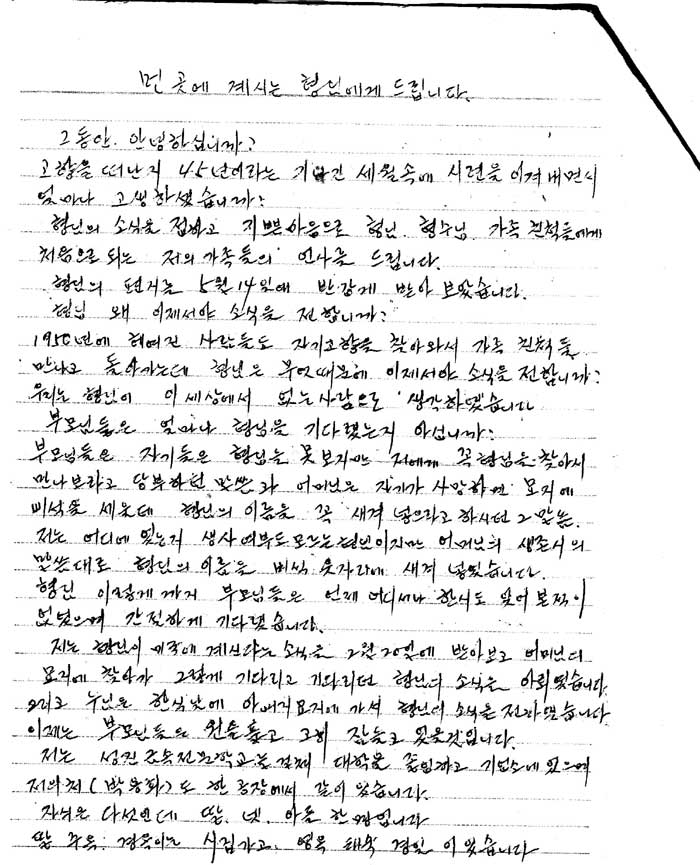 먼 곳에 계시는 형님에게 드립니다.
그동안. 안녕하십니까?
고향을 떠난지 45년이라는 기나긴 세월속에 시련을 이겨내면서
얼마나 고생하셨습니까?
형님의 소식을 접하고 기쁜마음으로 형님. 형수님. 가족 친척들에게
처음으로 되는 저의 가족들의 인사를 드립니다.
형님의 편지는 5월 14일에 반갑게 받아 보았습니다.
형님 왜 이제서야 소식을 전합니까?
1950년에 헤여진 사람들도 자기고향을 찾아와서 가족 친척들
만나고 돌아가는데 형님은 무엇때문에 이제서야 소식을 전합니까?
우리는 형님이 이 세상에서 없는사람으로 생각하였습니다
부모님들은 얼마나 형님을 기다렸는지 아십니까?
부모님들은 자기들은 형님을 못보지만 저에게 꼭형님을 찾아서
만나보라고 당부하던 말씀과 어머님은 자기가 사망하면 묘지에
비석을 세울데 형님의 이름을 꼭 새겨 넣으라고 하시던 그 말씀.
저는 어디에 있는지 생사여부도모르는형님이지만 어머님의 생존시의
말씀대로 형님의 이름을 비석 웃자리에 새겨 넣었습니다.
형님 이렇게까지 부모님들은 언제 어디서나 한시도 잊어본적이
없었으며 간절하게 기다렸습니다.
저는 형님이 미국에 계신다는 소식을 2월 20일에 받아보고 어머님의
묘지에 찾아가 그렇게 기다리고 기다리던 형님의 소식을 아뢰였습니다.
그리고 누님은 한식날에 아버지묘지에 가서 형님의 소식을 전하였습니다
이제는 부모님들은 원을풀고 고히 잠들고 있을것입니다.
저는 성진 전문학교를 걸쳐 대학을 졸업하고 기업소에 있으며
저의처(박용화)도 한 공장에서 같이 있습니다.
자식은 다섯인데 딸. 넷. 아들 한명입니다
딸 경옥이는 시집가고. 영옥 태숙 경일 이 있습니다